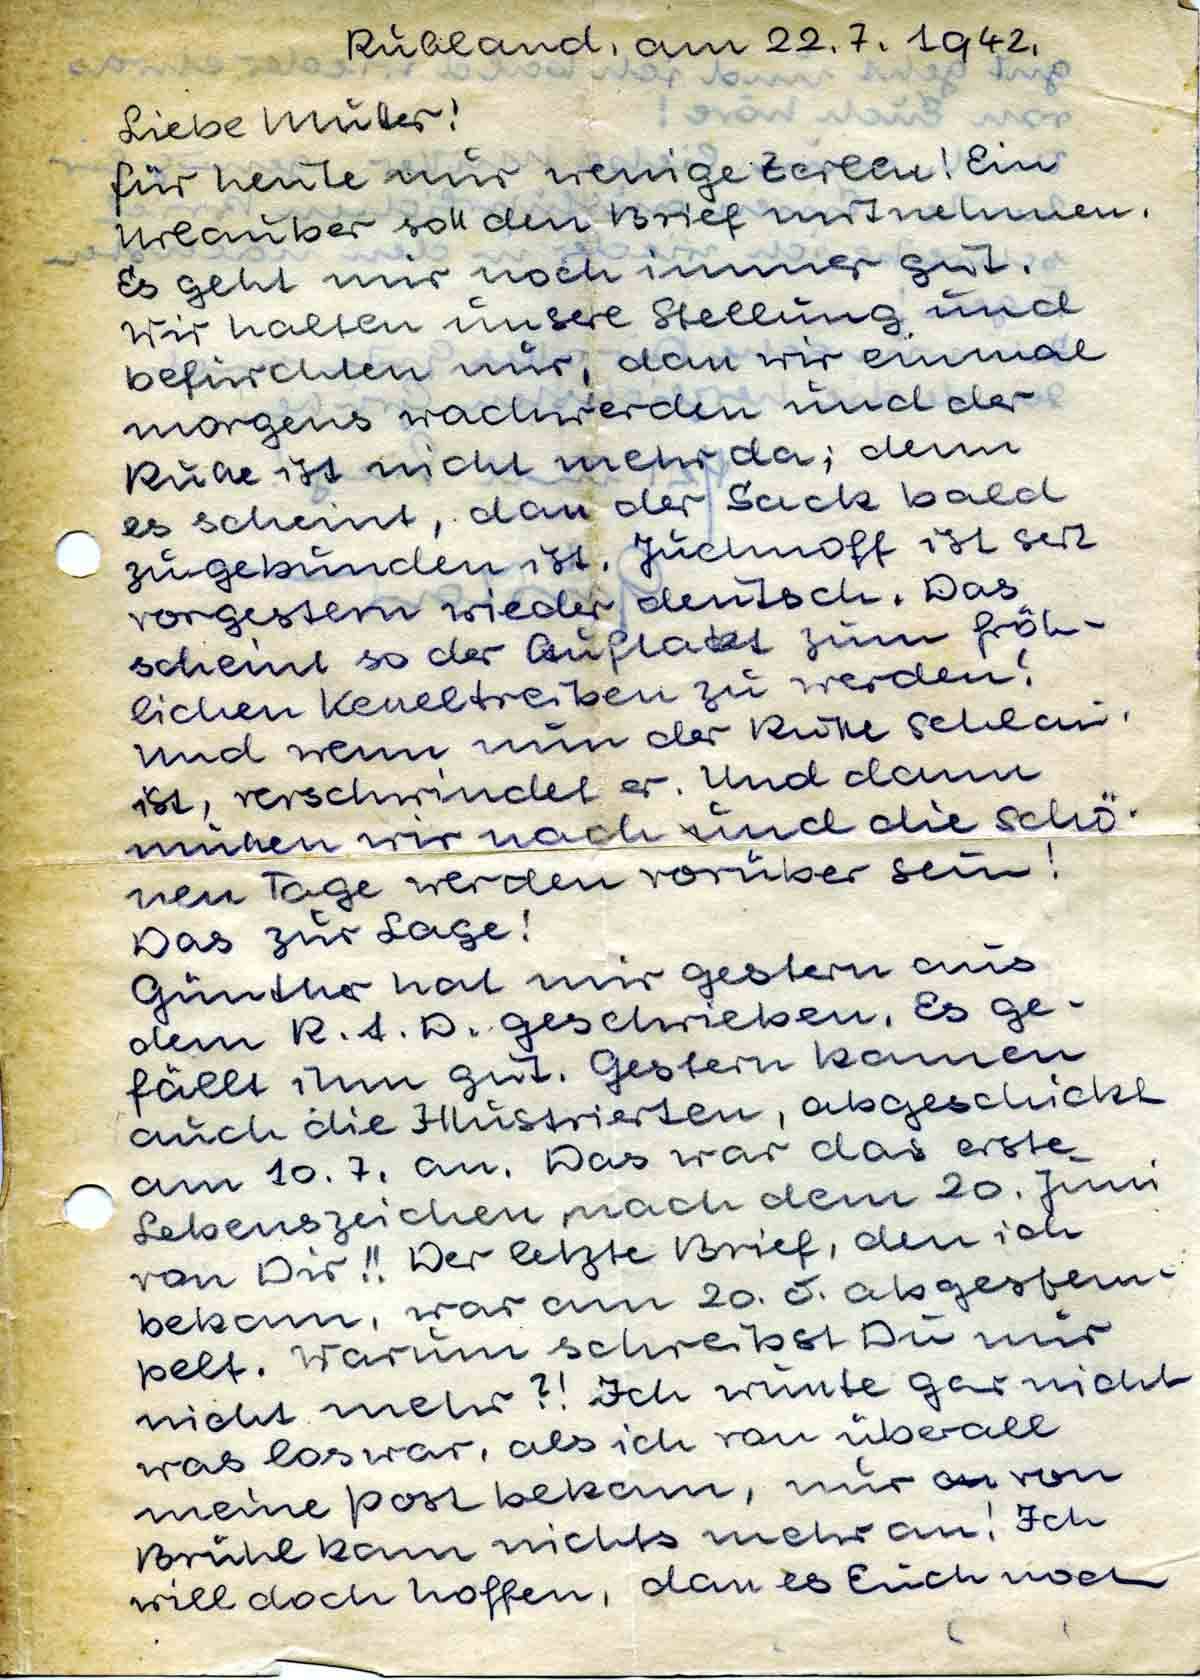 Rußland, am 22.7.1942.
Liebe Mutter!
für heute nur wenige Zeilen! Ein
Urlauber soll den Brief mitnehmen.
Es geht mir noch immer gut.
Wir halten unsere Stellung und
befürchten nur, dass wir einmal
morgens wachwerden und der
Russe ist nicht mehr da; denn
es scheint, dass der Sack bald
zugebunden ist. Juchnoff ist seit
vorgestern wieder deutsch. Das
scheint so der Auftakt zum fröh-
lichen Kesseltreiben zu werden!
Und wenn nun der Russe schlau
ist, verschwindet er. Und dann
müssen wir nach und die schö-
nen Tage werden vorüber sein!
Das zur Lage!
Günther hat mir gestern aus
dem R.A.D. geschrieben. Es ge-
fällt ihm gut. Gestern kamen
auch die Illustrierten, abgeschickt
am 10.7. an. Das war das erste
Lebenszeichen nach dem 20. Juni
von Dir!! Der letzte Brief, den ich
bekam, war am 20. abgestem-
pelt. Warum schreibst Du mir
nicht mehr?! Ich wusste gar nicht
was los war, als ich von überall
meine Post bekam, nur von
Brühl kam nichts mehr an! Ich
will doch hoffen, dass es Euch noch